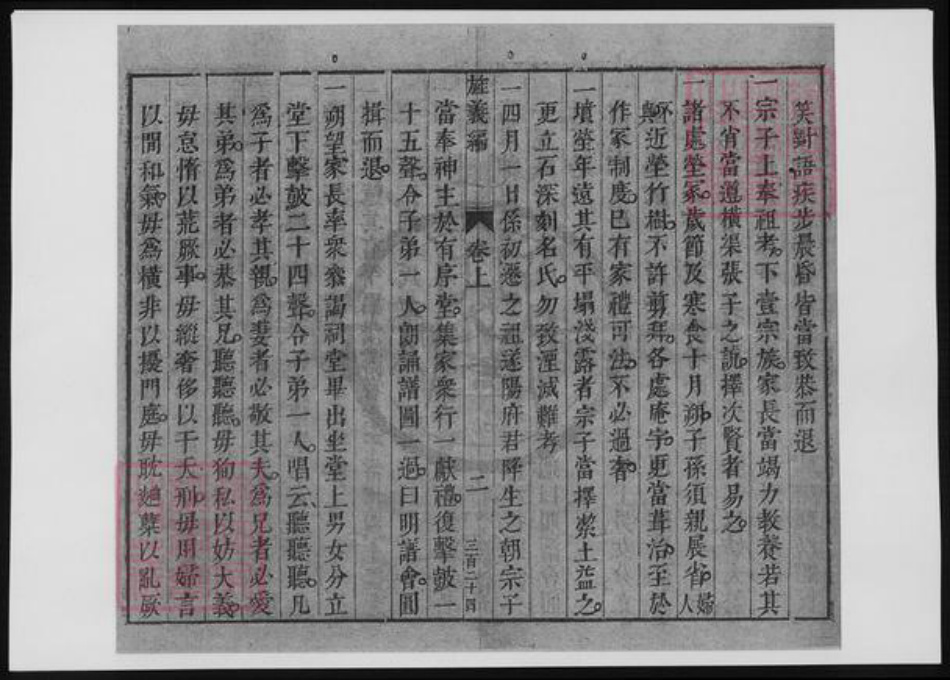 笑對語疾步晨昏皆當致恭而退
一宗子上奉祖考下壹宗族家長當竭力敎養若其
不肖當遵橫渠張子之說擇次賢者易之
一諸處塋冢歲節及寒食十月朔子孫須親展省婦人
不與近塋竹樹不許剪拜各處庵宇更當葺治至於
作冢制度已有家禮可法不必過奢
一墳塋年遠其有平塌淺露者宗子當擇潔土益之
更立石深刻名氏勿致湮滅難考
一四月一日係初遷之祖遂陽府君降生之朝宗子
旌義編 卷上 二 三百二十四
當奉神主於有序堂集家衆行一獻禮復擊鼓一
十五聲令子弟一人朗誦譜圖一過曰明譜會圓
揖而退
一朔望家長率衆叅謁祠堂畢出坐堂上男女分立
堂下擊鼓二十四聲令子弟一人唱云聽聽聽凡
爲子者必孝其親爲妻者必敬其夫爲兄者必愛
其弟爲弟者必恭其兄聽聽聽毋徇私以妨大義
毋怠惰以荒厥事毋縱奢侈以干天刑毋用婦言
以間和氣毋爲橫非以擾門庭毋耽麴糵以亂厥